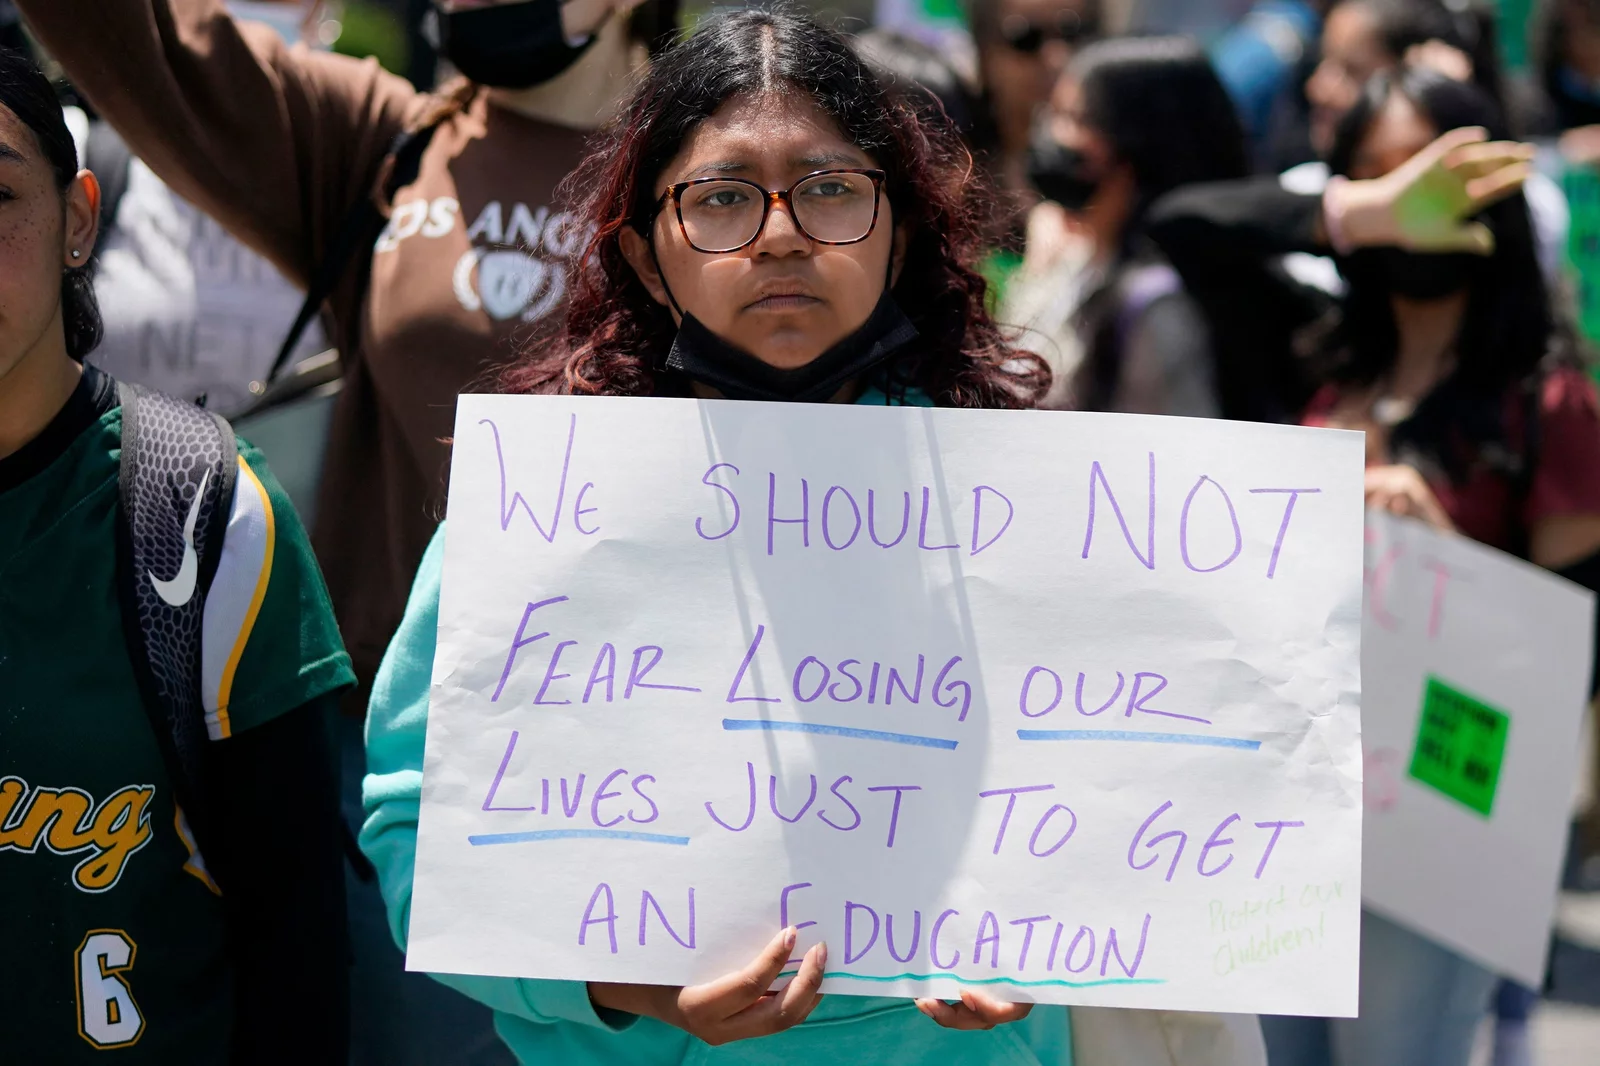 We SHOULD NOT
FEAR LOSING OUR
LIVES JUST TO GET
AN EDUCATION
Protect our
Children!
ing
6